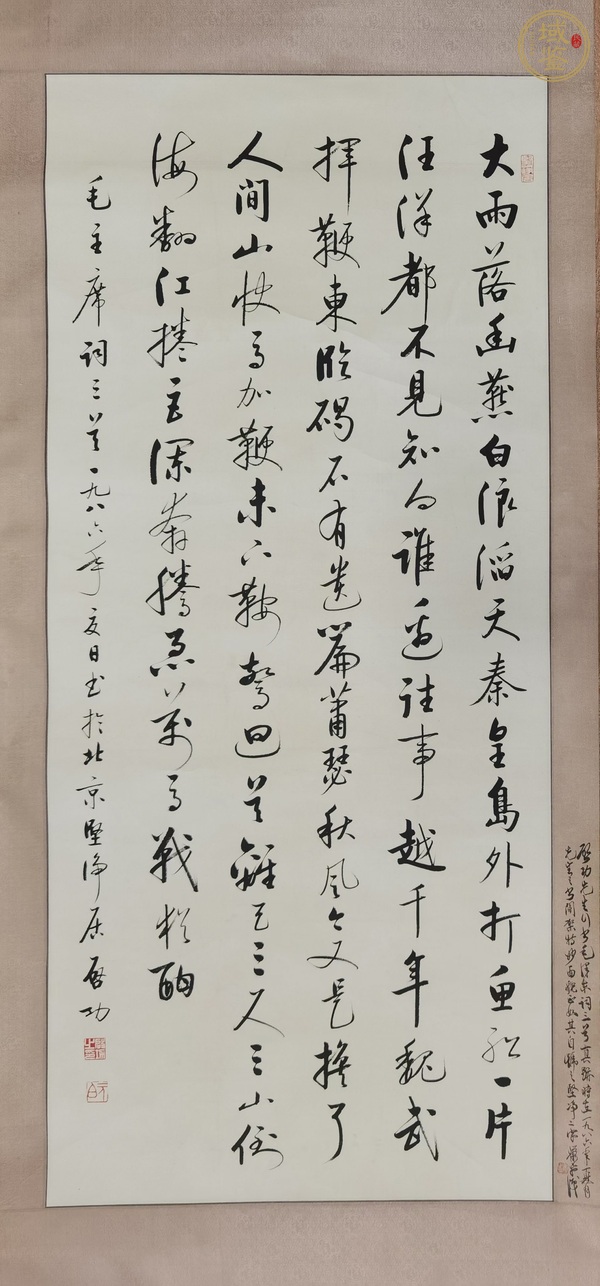 大雨落幽燕白浪滔天秦皇島外打魚船一片
汪洋都不見知向誰邊往事越千年魏武
揮鞭東臨碣石有遺篇蕭瑟秋風今又是換了
人間山快馬加鞭未下鞍驚回首離天三尺三山倒
海翻江捲巨瀾奔騰急萬馬戰猶酣
毛主席詞三首一九八六年夏日書於北京堅淨居啟功
啟功先生行書毛澤東詞三首真跡時在一九八六年
域鉴